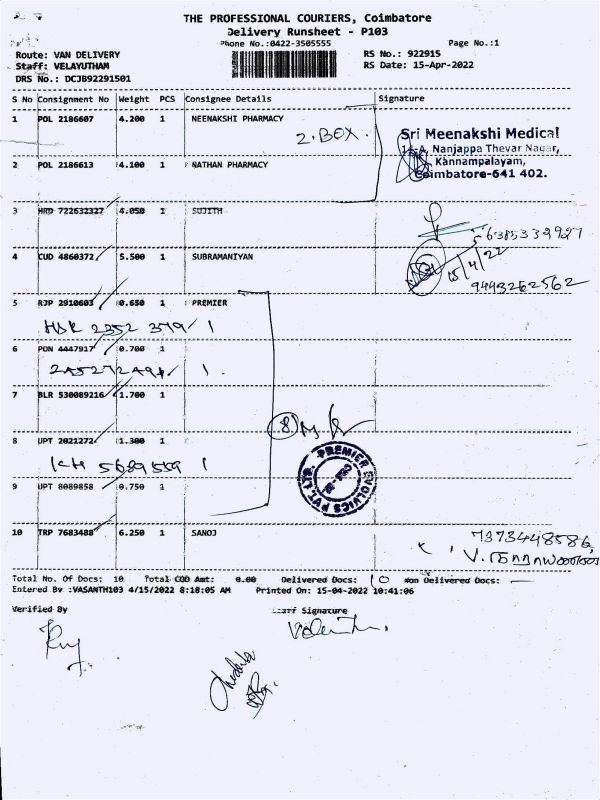 THE PROFESSIONAL COURIERS, Coimbatore
Delivery Runsheet - P103
Phone No.:0422-3505555
Page No.:1
Route: VAN DELIVERY
RS No.: 922915
Staff: VELAYUTHAM
RS Date: 15-Apr-2022
DRS No.: DCJB92291501
S No Consignment No Weight PCS Consignee Details Signature
1 POL 2186607 4.200 1 NEENAKSHI PHARMACY
2.BOX.
Sri Meenakshi Medical
Nanjappa Thevar Nagar,
Kannampalayam,
Coimbatore-641 402.
2 POL 2186613 4.100 1 NATHAN PHARMACY
3 HRD 722632327 4.050 1 SUJITH
6385339927
4 CUD 4860372 5.500 1 SUBRAMANIYAN
15/4/22
9493262562
5 RJP 2910603 0.650 1 PREMIER
HSR 2352 379 / 1
6 PON 4447917 0.700 1
1.
7 BLR 530089216 1.700 1
8
8 UPT 2021272 1.300 1
KH 5689559 1
PREMIER EVOLVICS PVT. LTD.
9 UPT 8089858 0.750 1
10 TRP 7683488 6.250 1 SANOJ
7373448586
Total No. Of Docs: 10 Total COD Amt: 0.00 Delivered Docs: 10 Non Delivered Docs: —
Entered By :VASANTH103 4/15/2022 8:18:05 AM Printed On: 15-04-2022 10:41:06
Verified By
Staff Signature